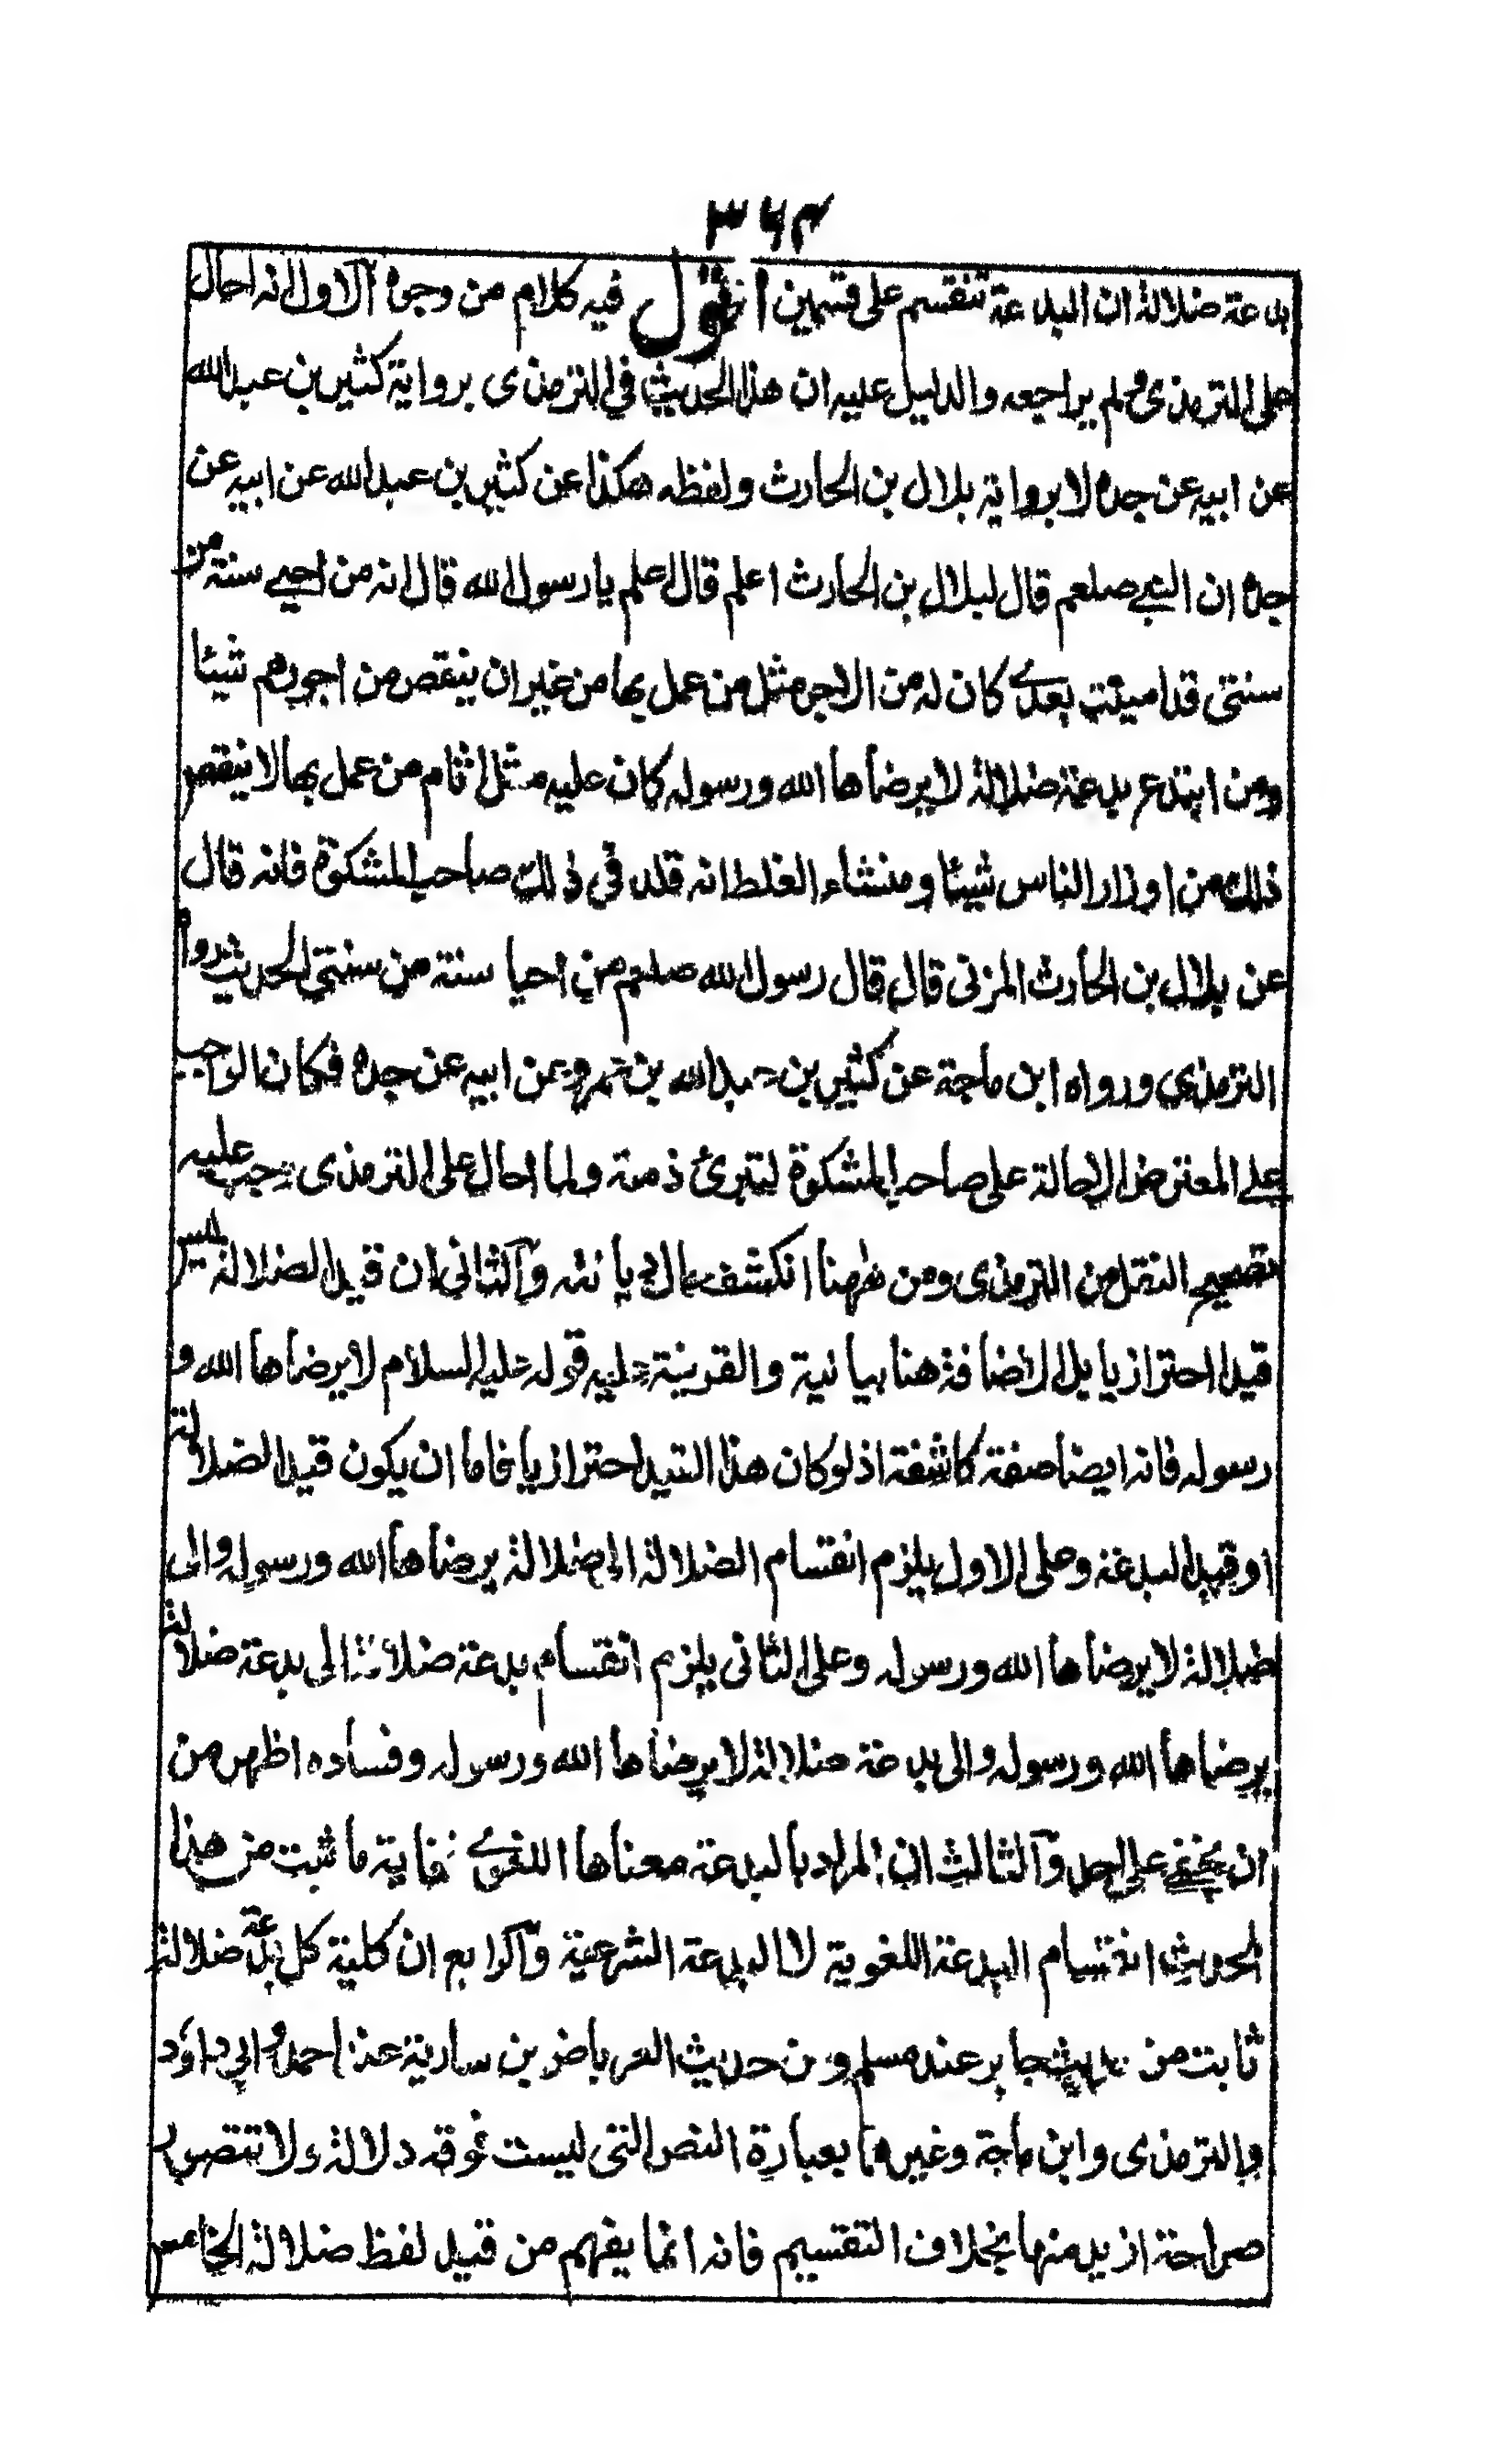 ۳۶۴
بدعة ضلالة ان البدعة تنقسم على قسمين اقول فيه كلام من وجوه الاول انه احال
على الترمذى ولم يراجعه والدليل عليه ان هذا الحديث في الترمذى برواية كثير بن عبد الله
عن ابيه عن جده لا برواية بلال بن الحارث ولفظه هكذا عن كثير بن عبد الله عن ابيه عن
جده ان النبي صلعم قال لبلال بن الحارث اعلم قال اعلم يا رسول الله قال انه من احيى سنة من
سنتى قد اميتت بعدى كان له من الاجر مثل من عمل بها من غير ان ينقص من اجورهم شيئا
ومن ابتدع بدعة ضلالة لا يرضاها الله ورسوله كان عليه مثل اثام من عمل بها لا ينقص
ذلك من اوزار الناس شيئا ومنشاء الغلط انه قلد في ذلك صاحب المشكوة فانه قال
عن بلال بن الحارث المزنى قال قال رسول الله صلعم من احيا سنة من سنتي الحديث رواه
الترمذي ورواه ابن ماجة عن كثير بن عبد الله بن عمرو عن ابيه عن جده فكان الواجب
على المعترض الاحالة على صاحب المشكوة ليتبرئ ذمته ولما احال على الترمذى وجب عليه
تصحيح النقل من الترمذى ومن ههنا انكشف حال ديانته والثانى ان قيد الضلالة ليس
قيدا احترازيا بل الاضافة هنا بيانية والقرينة عليه قوله عليه السلام لا يرضاها الله و
رسوله فانه ايضا صفة كاشفة اذ لو كان هذا القيد احترازيا فاما ان يكون قيد الضلالة
او قيد البدعة وعلى الاول يلزم انقسام الضلالة الى ضلالة يرضاها الله ورسوله والى
ضلالة لا يرضاها الله ورسوله وعلى الثانى يلزم انقسام بدعة ضلالة الى بدعة ضلالة
يرضاها الله ورسوله والى بدعة ضلالة لا يرضاها الله ورسوله وفساده اظهر من
ان يخفى على احد والثالث ان المراد بالبدعة معناها اللغوى فغاية ما ثبت من هذا
الحديث انقسام البدعة اللغوية لا البدعة الشرعية والرابع ان كلية كل بدعة ضلالة
ثابت من حديث جابر عند مسلم ومن حديث العرباض بن سارية عند احمد وابي داود
والترمذى وابن ماجة وغيرهما بعبارة النص التى ليست فوقه دلالة ولا تتصور
صراحة ازيد منها بخلاف التقسيم فانه انما يفهم من قيد لفظ ضلالة الخامس